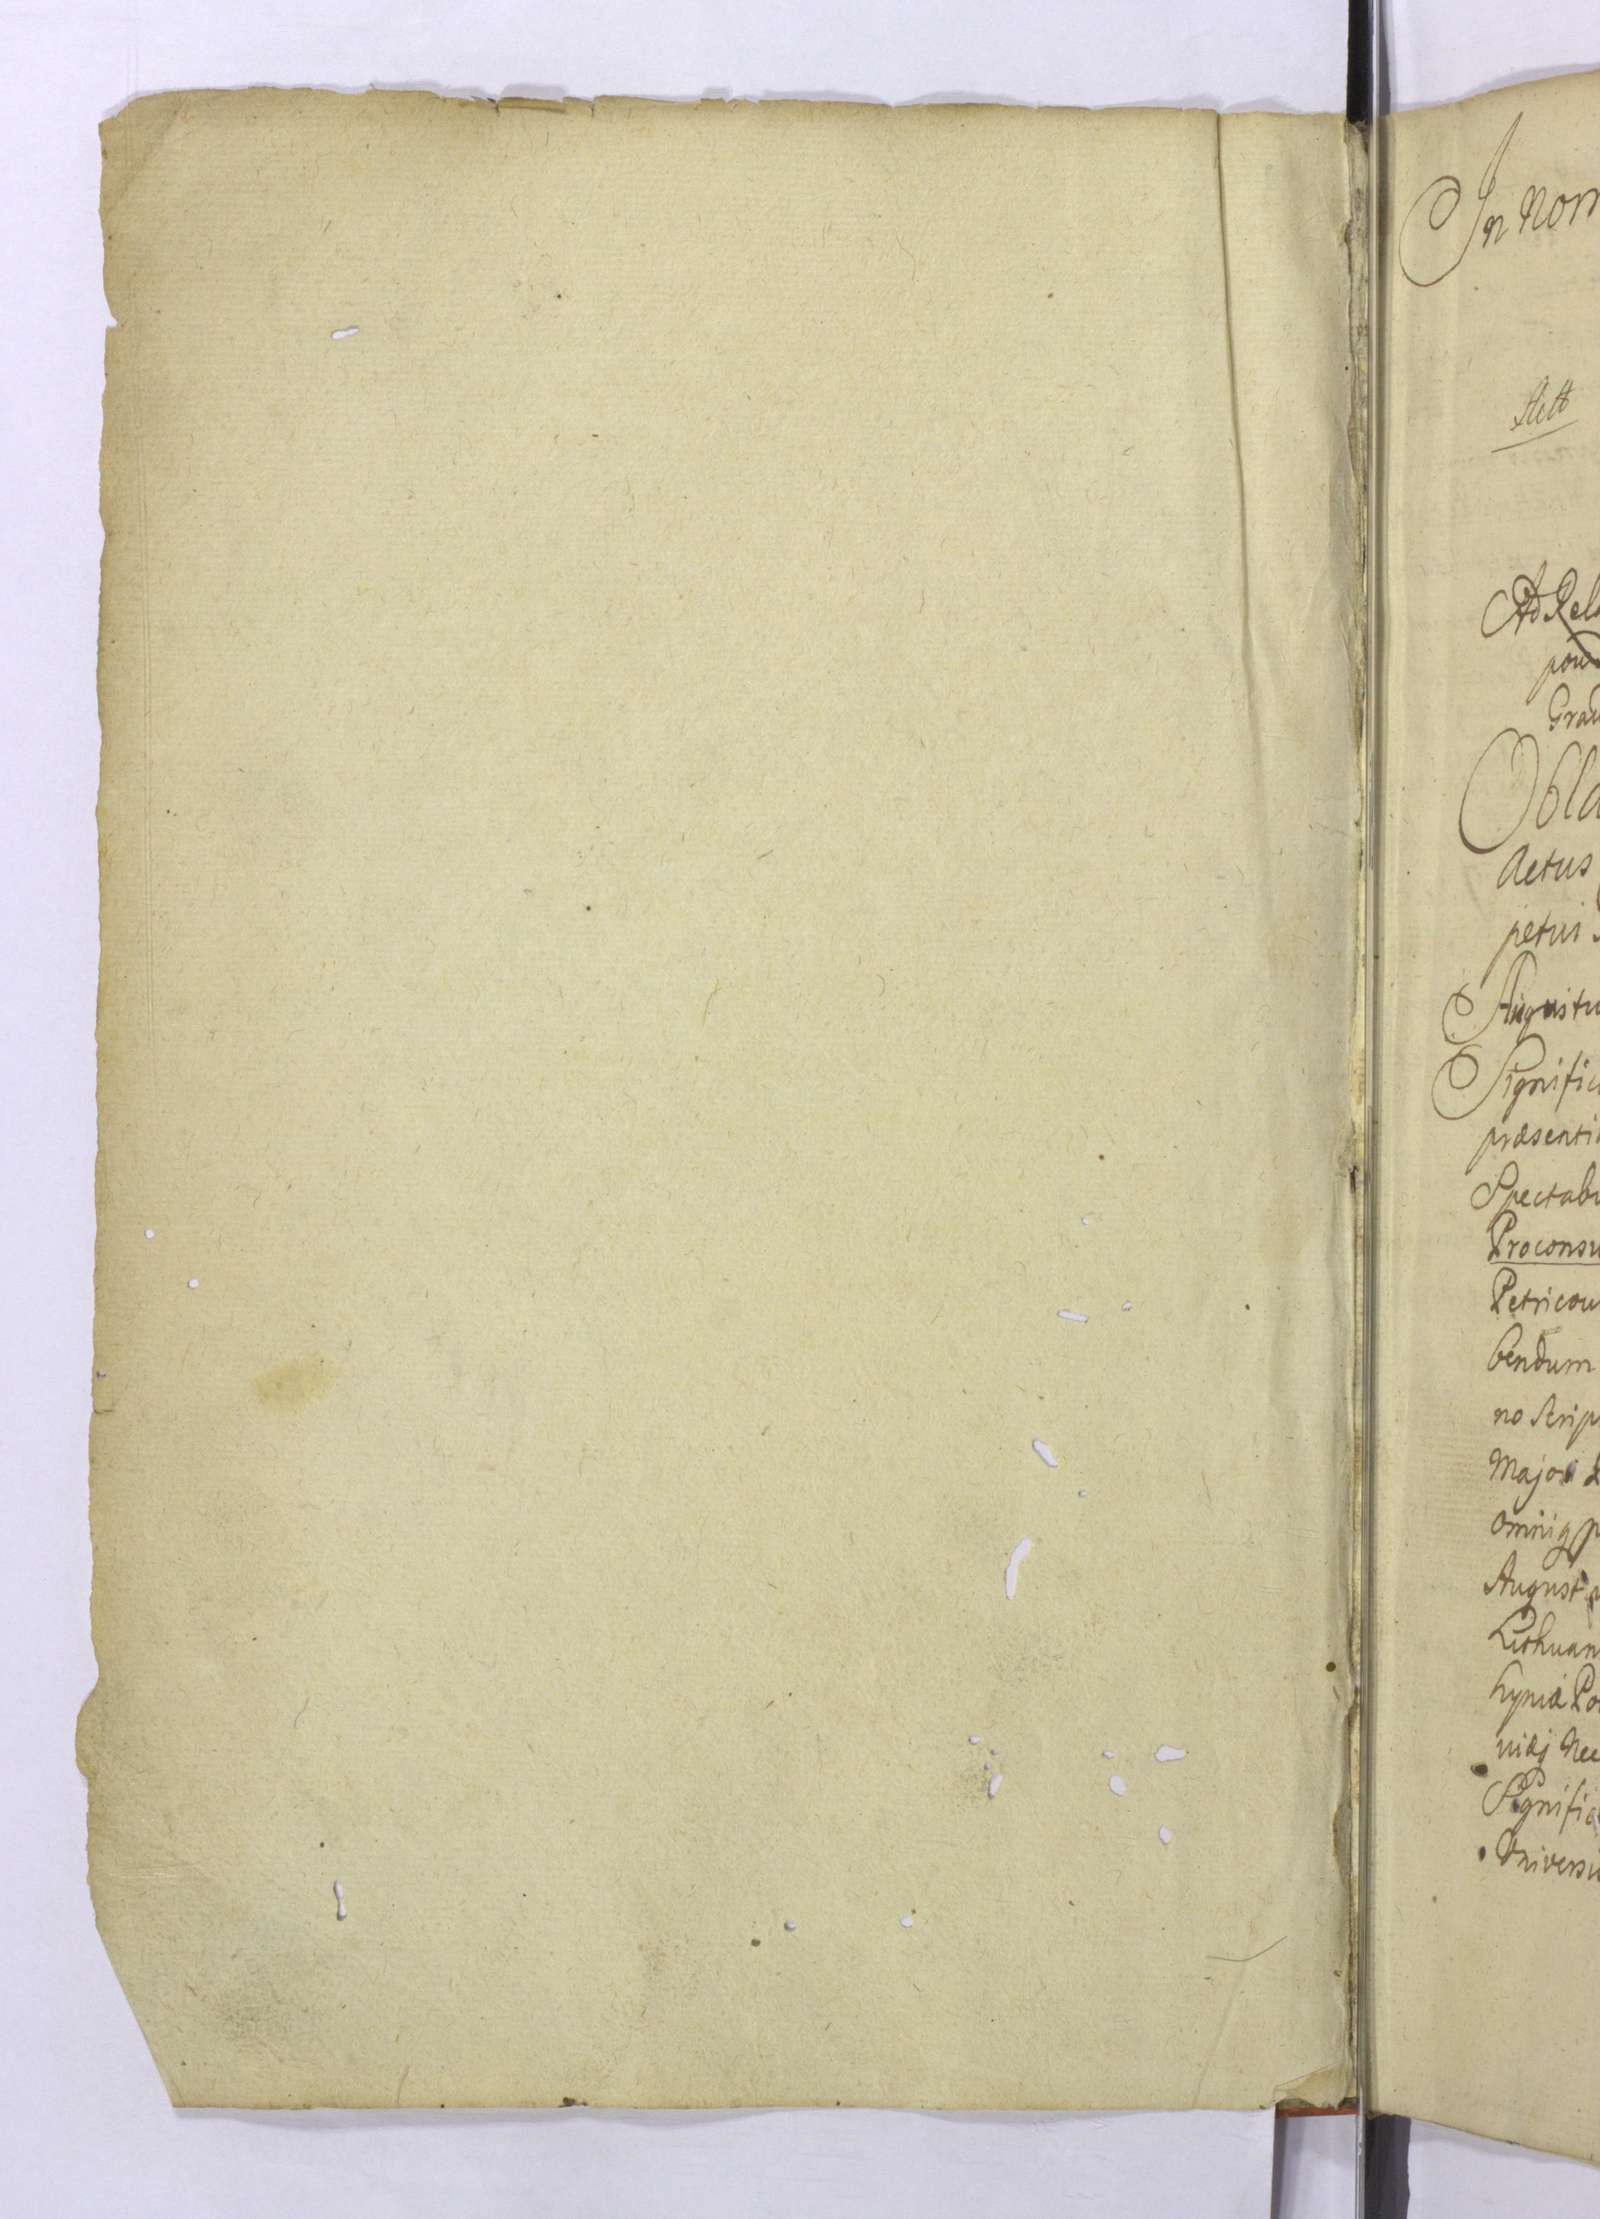 In nom
Actt
Ad Rela
Grau
Obla
Actus
petui
Augustu
Signific
præsenti
Spectabi
Proconsu
Petricou
bendum
no Scrip
Majori
omniq p
August
Lithuan
hyniæ Po
Nec
Signific
Universi